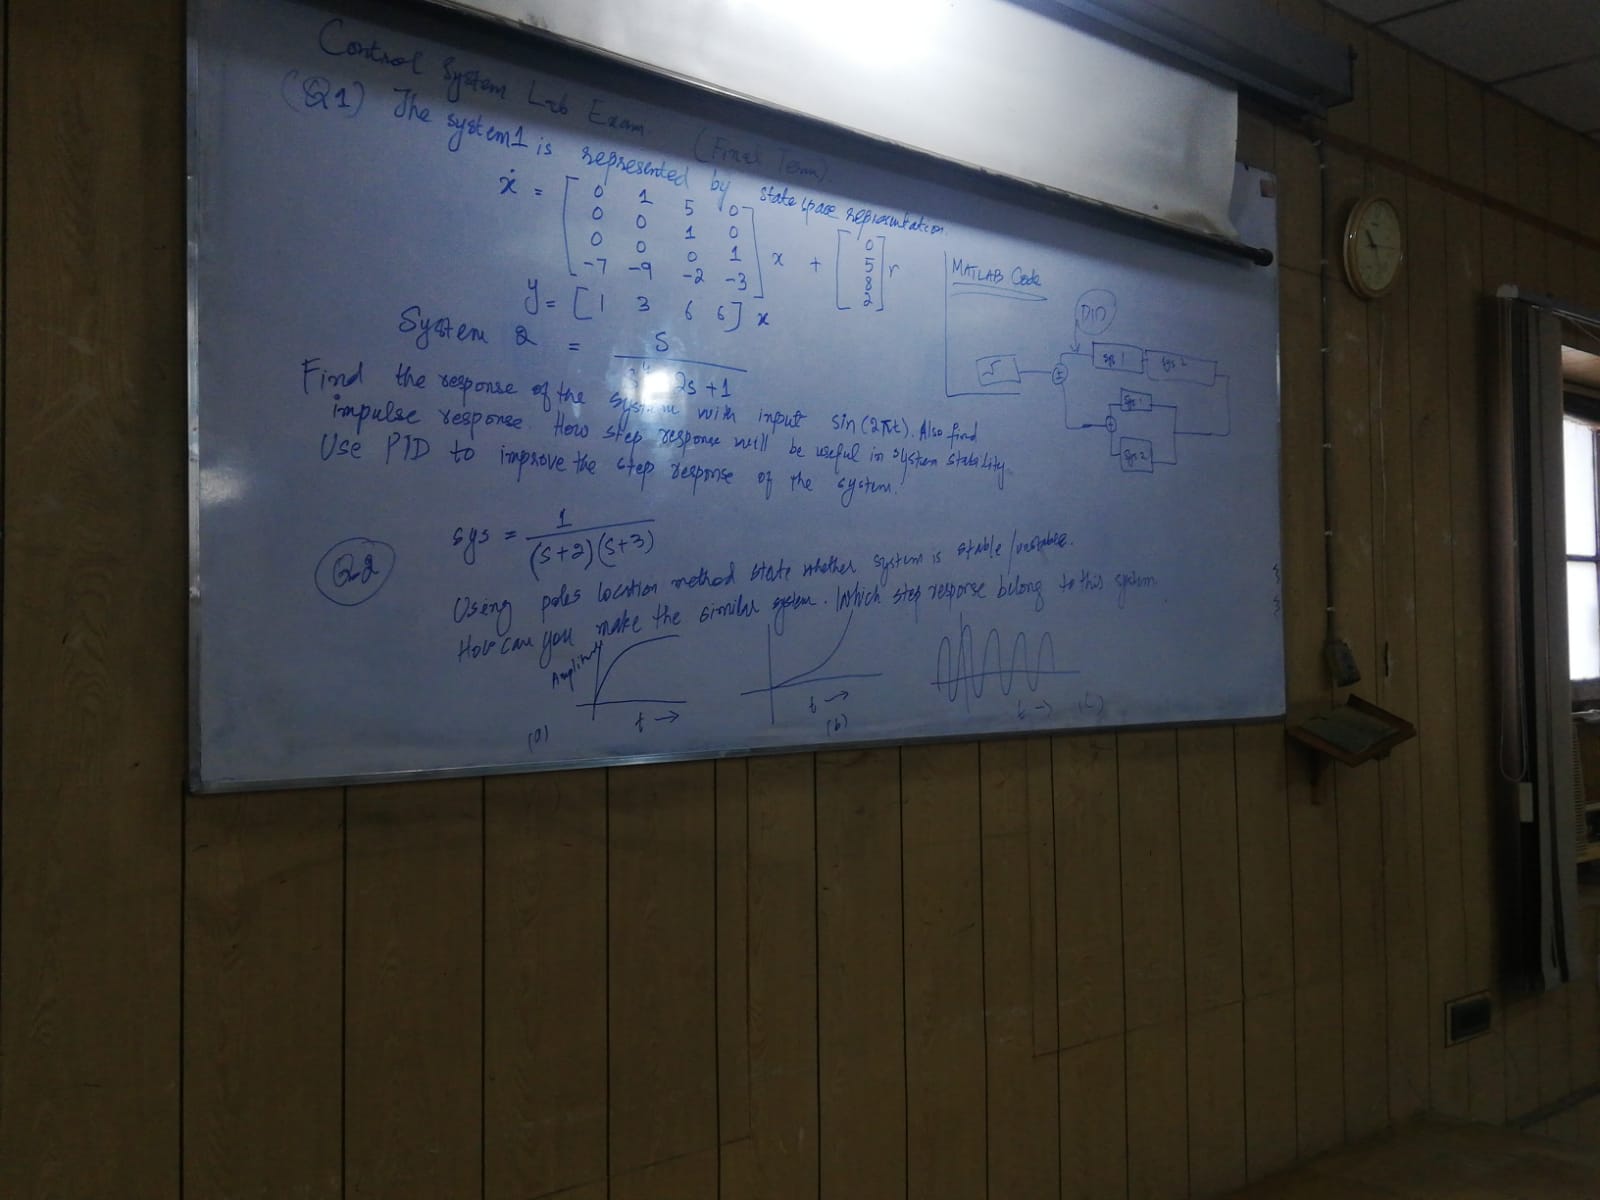 Control System Lab Exam (Final Term).
(Q1) The system1 is represented by state space representation.
ẋ = [ 0 1 5 0
0 0 1 0
0 0 0 1
-7 -9 -2 -3 ] x + [ 0
5
8
2 ] r
y = [ 1 3 6 6 ] x
System 2 = s
2s + 1
Find the response of the system with input sin(2πt). Also find
impulse response. How step response will be useful in system stability.
Use PID to improve the step response of the system.
MATLAB Code
PID
sys 1
sys 2
sys 1
sys 2
Q2
sys = 1
(s+2)(s+3)
Using poles location method state whether system is stable/unstable.
How can you make the similar system. Which step response belong to this system.
Amplitude
t →
(a)
t →
(b)
t →
(c)